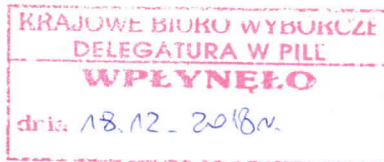 KRAJOWE BIURO WYBORCZE
DELEGATURA W PILE
WPŁYNĘŁO
dnia 18.12.2018r.